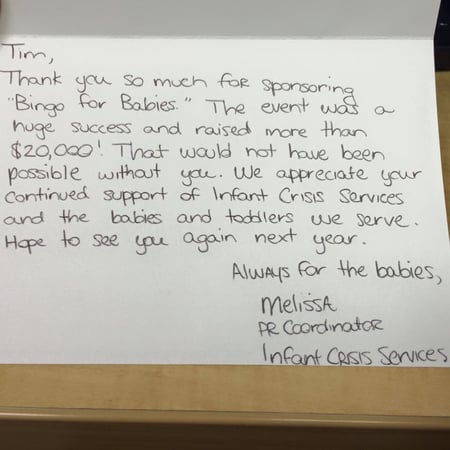 Tim,
Thank you so much for sponsoring
"Bingo for Babies." The event was a
huge success and raised more than
$20,000! That would not have been
possible without you. We appreciate your
continued support of Infant Crisis Services
and the babies and toddlers we serve.
Hope to see you again next year.
Always for the babies,
Melissa
PR Coordinator
Infant Crisis Services